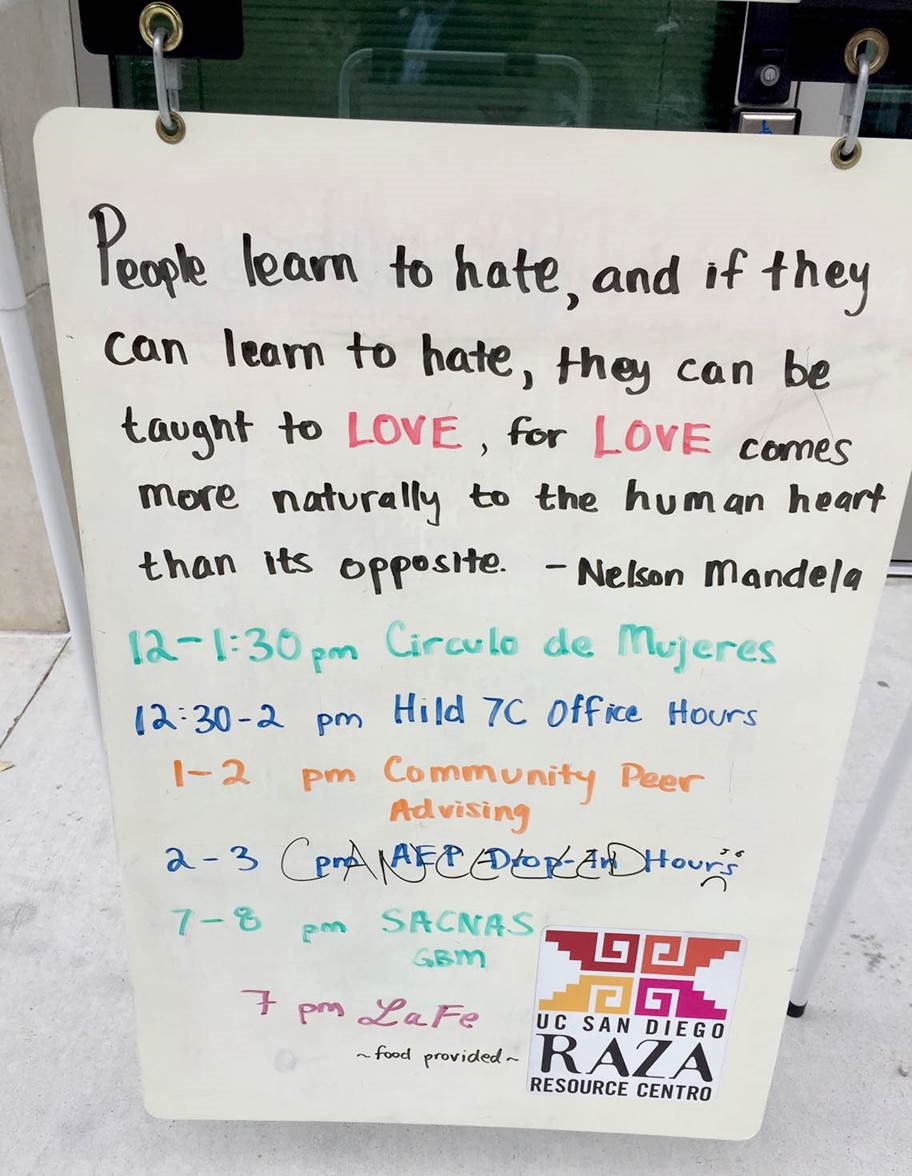 People learn to hate, and if they
can learn to hate, they can be
taught to LOVE, for LOVE comes
more naturally to the human heart
than its opposite. - Nelson Mandela
12-1:30 pm Circulo de Mujeres
12:30-2 pm Hild 7C Office Hours
1-2 pm Community Peer
Advising
2-3 pm AEP Drop-In Hours
CANCELLED
7-8 pm SACNAS
GBM
7 pm LaFe
~food provided~
UC SAN DIEGO
RAZA
RESOURCE CENTRO